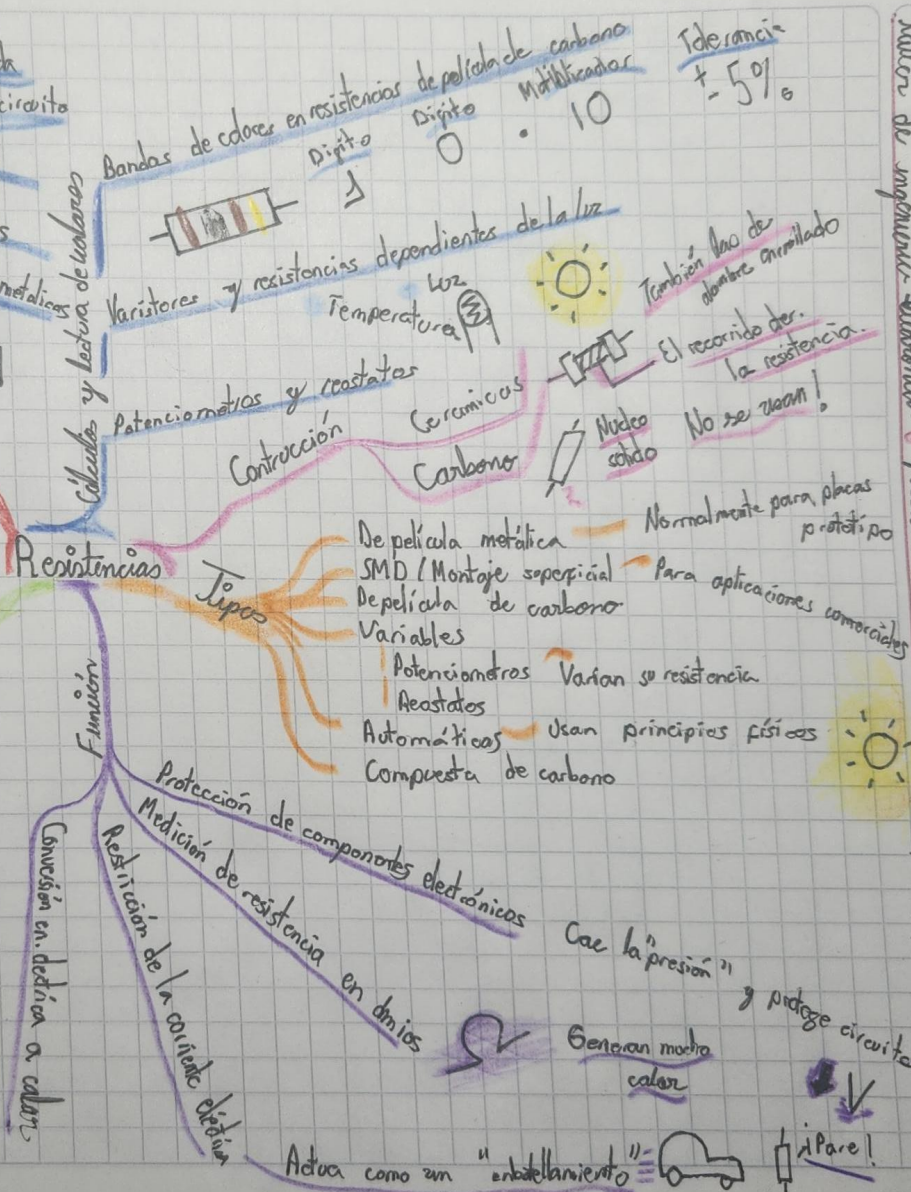 circuito
Bandas de colores en resistencias de película de carbono
Tolerancia
± 5%
Dígito
Dígito
Multiplicador
1
0 · 10
Varistores y resistencias dependientes de la luz
Luz
Temperatura
Potenciometros y reostatos
Cálculos y Lectura de valores
También
de
alambre enrrollado
El recorrido der.
la resistencia.
Contrucción
Ceramicas
Carbono
Nucleo
solido
No se usan!
Resistencias
Tipos
De película metálica
Normalmente para placas
prototipo
SMD / Montaje superficial
Para aplicaciones comerciales
De película de carbono
Variables
Potenciometros
Varían su resistencia
Reostatos
Automáticas
Usan principios físicos
Compuesta de carbono
Función
Protección de componentes electrónicos
Cae la "presión"
y protege circuito
Medición de resistencia en ohmios
Ω
Generan mucho
calor
Restricción de la corriente eléctrica
Actua como un "enbotellamiento"
¡Pare!
V
Conversión en. eléctrica a calor.
de ingeniería
metálicas